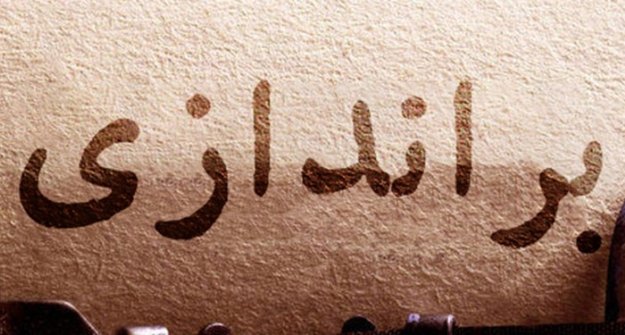 بر اندازی